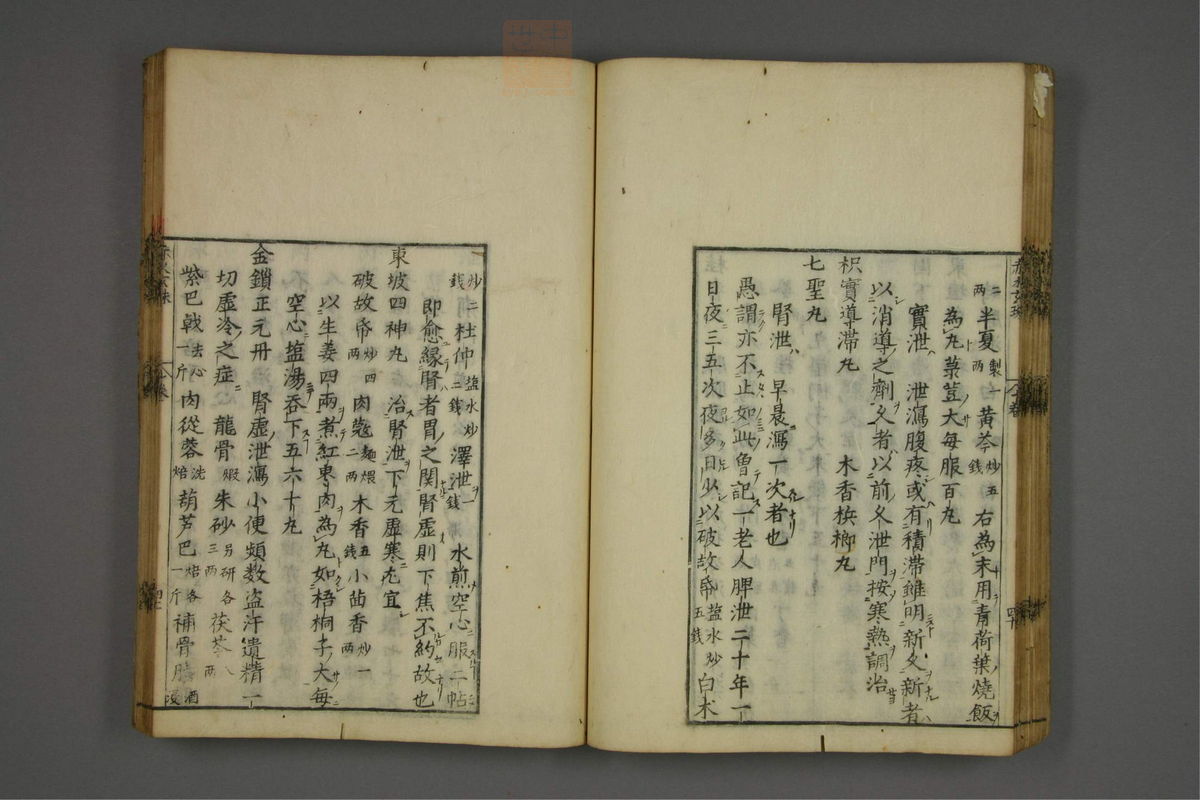 二両半夏製一両黄芩炒五錢右為末用青荷葉燒飯
為丸菉荳大每服百丸
實泄 泄瀉腹疼或有積滯雖明新久新者
以消導之劑久者以前久泄門按寒熱調治
枳實導滯丸 木香梹榔丸
七聖丸
腎泄 早晨瀉一次者也
愚謂亦不止如此魯記一老人脾泄二十年一
日夜三五次夜多日少以破故帋塩水炒五錢白朮
炒二錢杜仲塩水炒二錢澤泄一錢水煎空心服二帖
即愈緣腎者胃之関腎虛則下焦不約故也
東坡四神丸 治腎泄下元虛寒尤宜
破故帋炒四両肉蔲麵煨二両木香五錢小茴香炒一両
以生姜四兩煮紅棗肉為丸如梧桐子大每
空心塩湯吞下五六十丸
金鎖正元丹 腎虛泄瀉小便頻数盗汗遺精一
切虛冷之症 龍骨煅朱砂另研各三両茯苓八両
紫巴戟去心一斤肉從蓉洗焙葫芦巴焙各一斤補骨脂酒浸